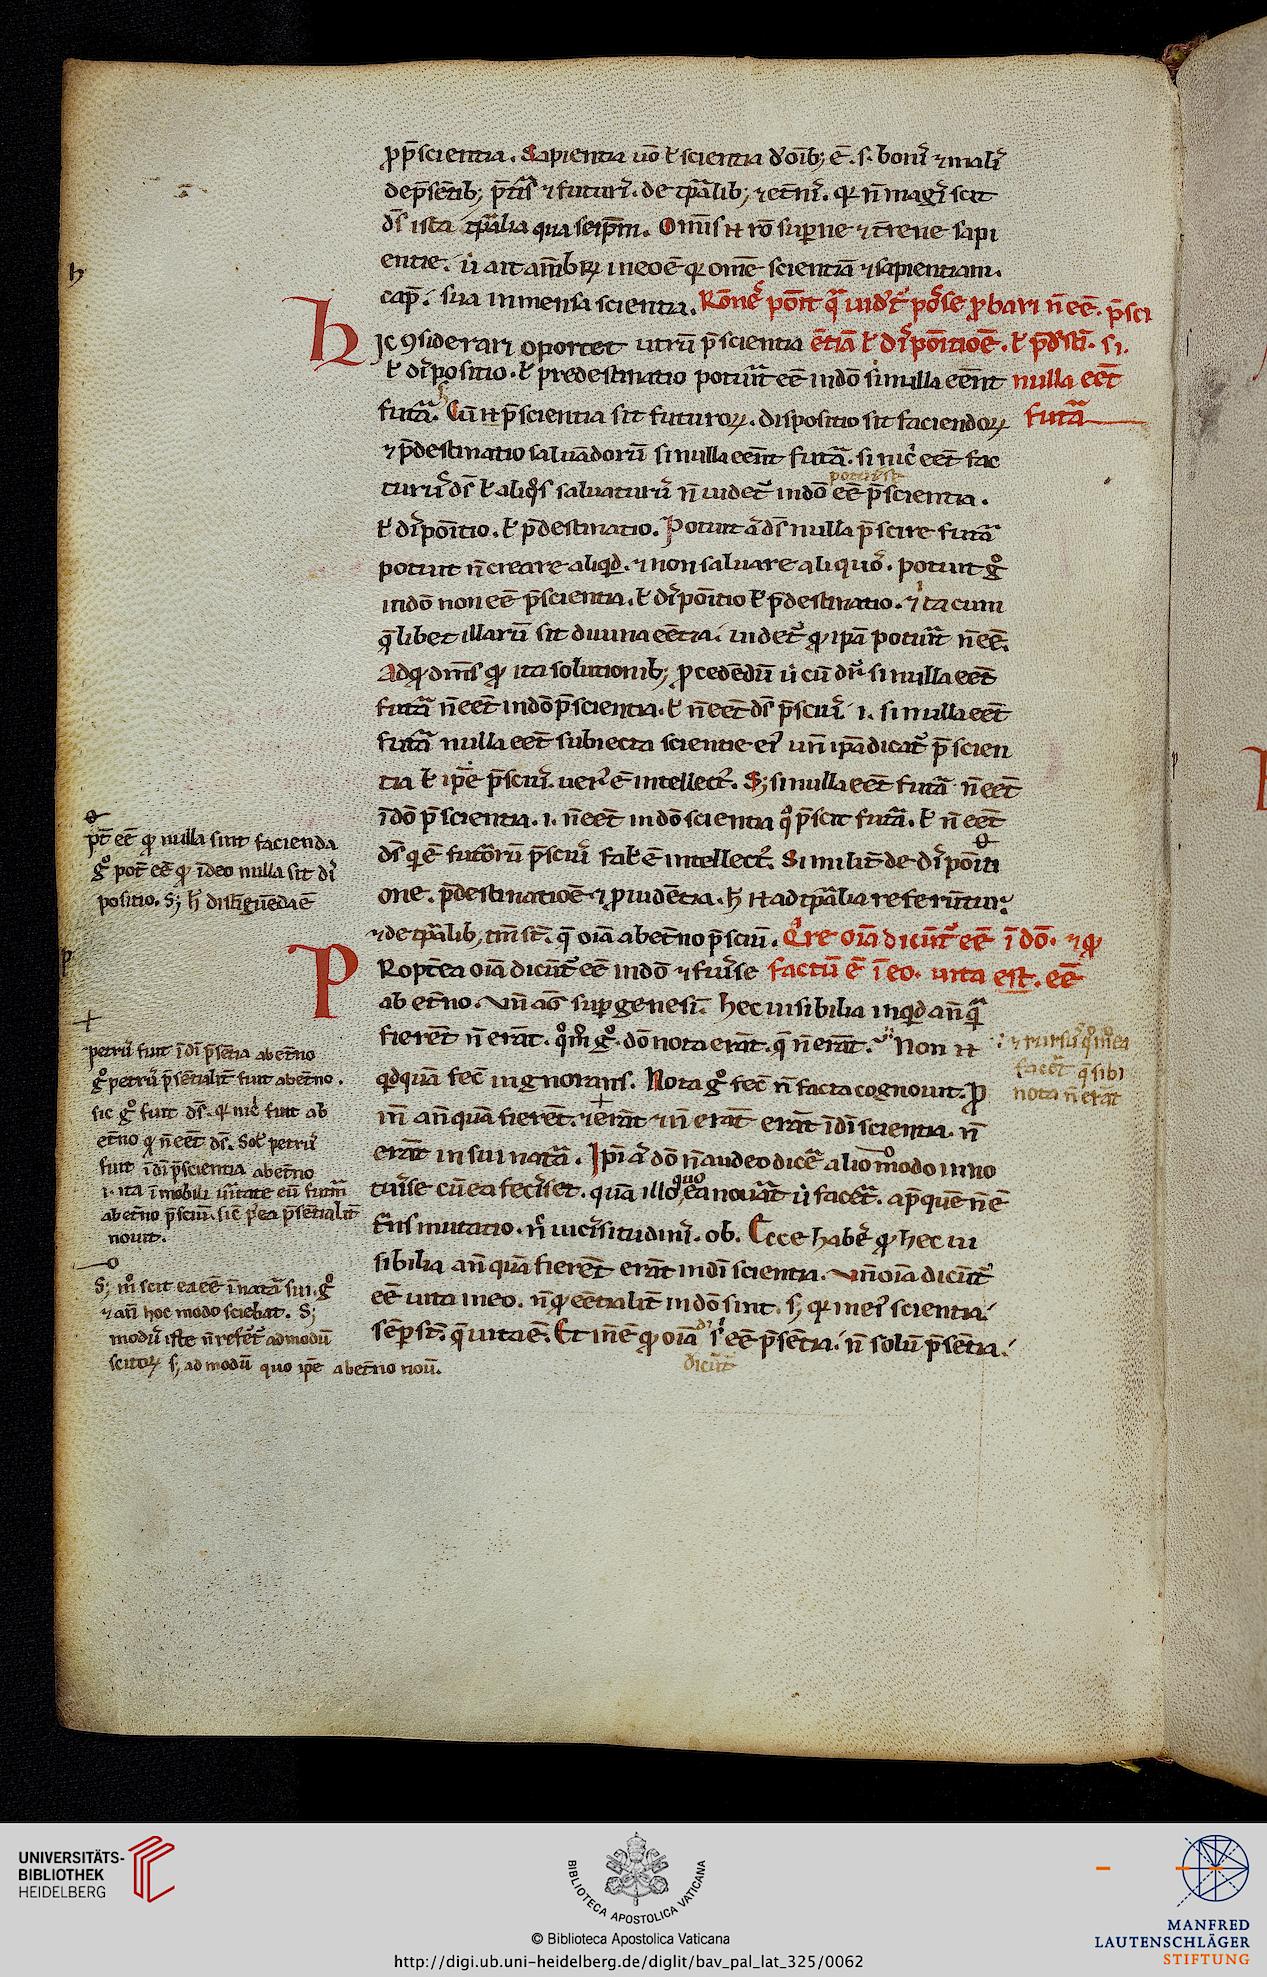 ꝓp̄scientia. Sapientia uo᷒ ł scientia d' oīb; ē. s. bonis ⁊ malis
de p̄sētib; p̄t̄is ⁊ futuris. de tp̄alib; ⁊ et̄nis. q̄ n̄ magis scit
ds̄ ista tp̄alia qua seip̄m.
entie. ait am̄br. in eo ē q̄ om̄e scientiā ⁊ sapientiam.
cap̄. sua inmensa scientia. n̄ eē. p̄sci
hic ꝯsiderari oportet utrū p̄scientia
ł dispositio. ł predestinatio potuit eē in dō si nulla eēnt nulla eēt
futā. Cū p̄scientia sit futuroꝝ. dispositio sit faciendoꝝ futā
⁊ p̄destinatio saluādorū si nulla eēnt futā. si nic̄ eēt fac
turus ds̄ ł aliq̊s saluaturus n̄ uidet' in dō eē p̄scientia.
ł dispōitio. ł p̄destinatio. Potuit ds̄ nulla p̄scire futā
potuit n̄ creare aliqd. ⁊ non saluare aliquos. potuit g̊
in dō non eē p̄scientia. ł dispōitio ł p̄destinatio. ⁊ ita cum
q̄libet illarū sit diuina eētia. uidet' ꝙ ip̄a potuit n̄ eē.
Ad qd dicim̄s ꝙ ita solutionib; ꝓcedēdū cū dr̄ si nulla eēt
futā n̄ eēt in dō p̄scientia. ł n̄ eēt ds̄ p̄scius i. si nulla eēt
futā nulla eēt subiecta scientie ei' un̄ ip̄a dicat' p̄scien
tia ł ip̄e p̄scius. uer' ē intellect'. S; si nulla eēt futā n̄ eēt
ī dō p̄scientia. i. n̄ eēt in dō scientia q̊ p̄scit futā. ł n̄ eēt
ds̄ qi ē futorū p̄scius fals' ē intellect'. Similit̄ de dispōiti
one. p̄destinatiōe ⁊ ꝓuidētia. h̄ ad tp̄alia referūtur
⁊ de tp̄alib; tm̄ st̄. q̄ oīa ab et̄no p̄sciuit. Q̄re oīa dicūt' eē ī dō. ⁊ ꝙ
Ropt̄ea oīa dicūt' eē in dō ⁊ fuisse factū ē ī eo. uita est. eē
ab et̄no. Vn̄ aug̅ sup genesī. hec uisibilia inqid an̄ q̄
fierēt n̄ erāt. q̊m̊ g̊ dō nota erāt. q̄ n̄ erāt. Non
qdquā fec̄ ingnorans. Nota g̊ fec̄ n̄ facta cognouit. P
in̄ an̄ quā fierēt. ⁊ erāt ⁊ n̄ erāt erāt ī dī scientia. n̄
erāt in sui natā. Ipsi a' dō n̄ audeo dic̄e alio modo inno
tuisse cū ea fecisset. quā illo quo ea nouat ut facet. ap̄ quē n̄ ē
tn̄smutatio. n̄ uicissitudinis ob. Ecce habes ꝙ hec ui
sibilia an̄ quā fierēt erāt in dī scientia. Vn̄ oīa dicūt'
eē uita in eo. n̄ ꝙ eētialit̄ in dō sint. s; q̄ in ei' scientia
sēp st̄. q̄ uita ē. Et in̄ ē ꝙ oīa d's' eē p̄sētia. n̄ solū p̄sētia.
dicūt'
pt̄ eē ꝙ nulla sint facienda
g̊ pot̄ eē ꝙ ideo nulla sit dis
positio. S; h̄ distīguēda ē
petrus fuit ī dī p̄sētia ab et̄no
g̊ petrus p̄sētialit̄ fuit ab et̄no.
sic g̊ fuit ds̄. q̄ nic̄ fuit ab
et̄no q̄ n̄ eēt ds̄. Sol' petrus
fuit ī dī p̄scientia ab et̄no
i. ita īmobili uītate eū futm̄
ab et̄no p̄sciuit. sic p̄ea p̄sētialit̄
nouit.
S; m̊ scit ea eē ī natā sui. g̊
⁊ an̄ hoc modo sciebat. S;
modus iste n̄ refert' ad modū
scitoꝝ s; ad modū quo ip̄e ab et̄no nouit.
⁊ rursus q̊m̊ ea
facet q̄ sibi
nota n̄ erāt
UNIVERSITÄTS-
BIBLIOTHEK
HEIDELBERG
BIBLIOTECA APOSTOLICA VATICANA
© Biblioteca Apostolica Vaticana
http://digi.ub.uni-heidelberg.de/diglit/bav_pal_lat_325/0062
MANFRED
LAUTENSCHLÄGER
STIFTUNG